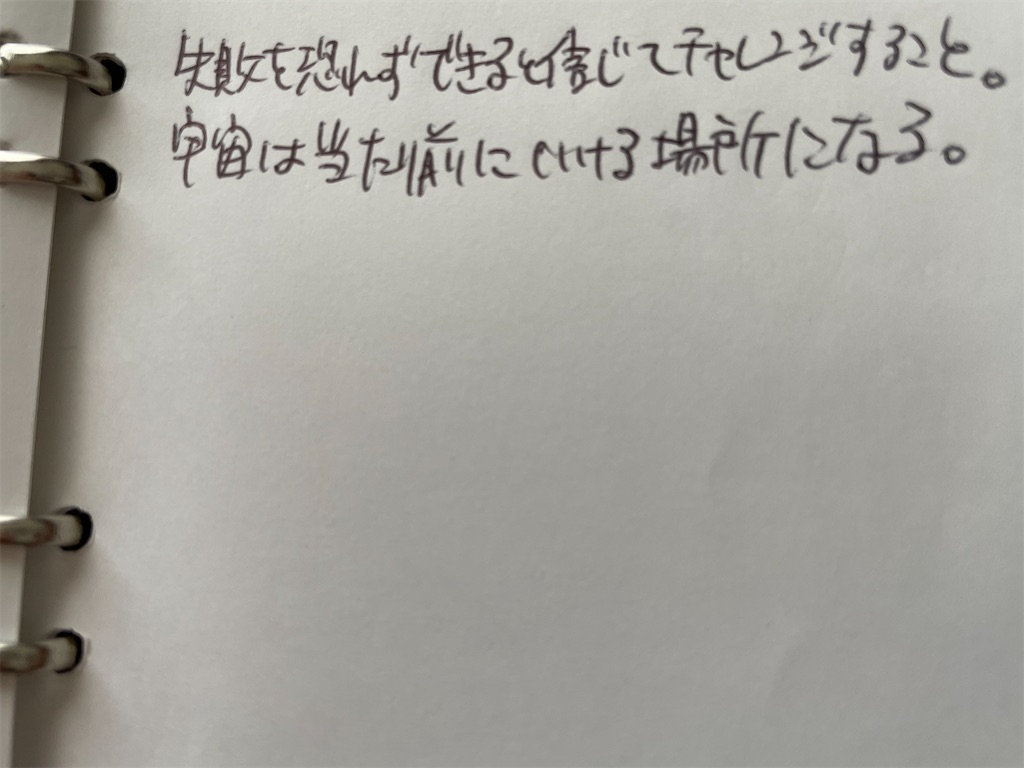 失敗を恐れずできると信じてチャレンジすること。
宇宙は当たり前にいける場所になる。